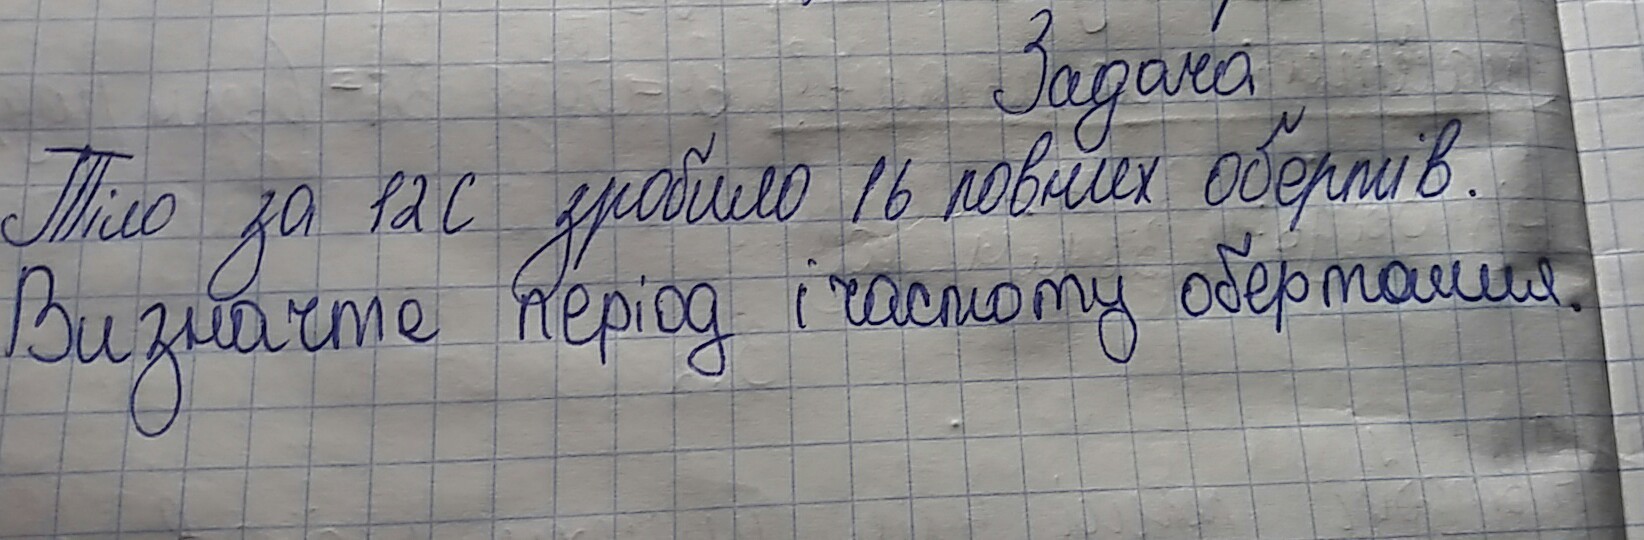 Задача
Тіло за 12 с зробило 16 повних обертів.
Визначте період і частоту обертання.